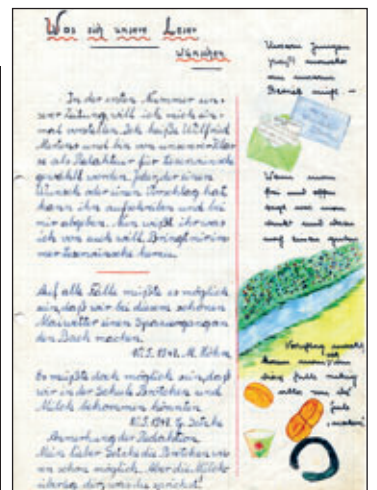 Was sich unsere Leser
wünschen
In der ersten Nummer uns-
rer Zeitung will ich mich ein-
mal vorstellen. Ich heiße Wilfried
Mertens und bin von unserer Klas-
se als Redakteur für Leserwünsche
gewählt worden. Jeder, der einen
Wunsch oder einen Vorschlag hat
kann ihn aufschreiben und bei
mir abgeben. Nun wißt ihr was
ich von euch will. Bringt mir im-
mer Leserwünsche herein.
Auf alle Fälle müßte es möglich
sein, daß wir bei diesem schönen
Maiwetter einen Spaziergang an
den Bach machen.
10.5.1948. M. Höhn
Es müßte doch möglich sein, daß
wir in der Schule Brötchen und
Milch bekommen könnten.
10.5.1948. G.
Anmerkung der Redaktion
Mein lieber die Brötchen wä-
ren schon möglich. Aber die Milch
überleg dir, was du sprichst!
Unseren Jungen
paßt manches
an unserem
Wenn man
frei und offen
sagt was man
denkt und
auf einen